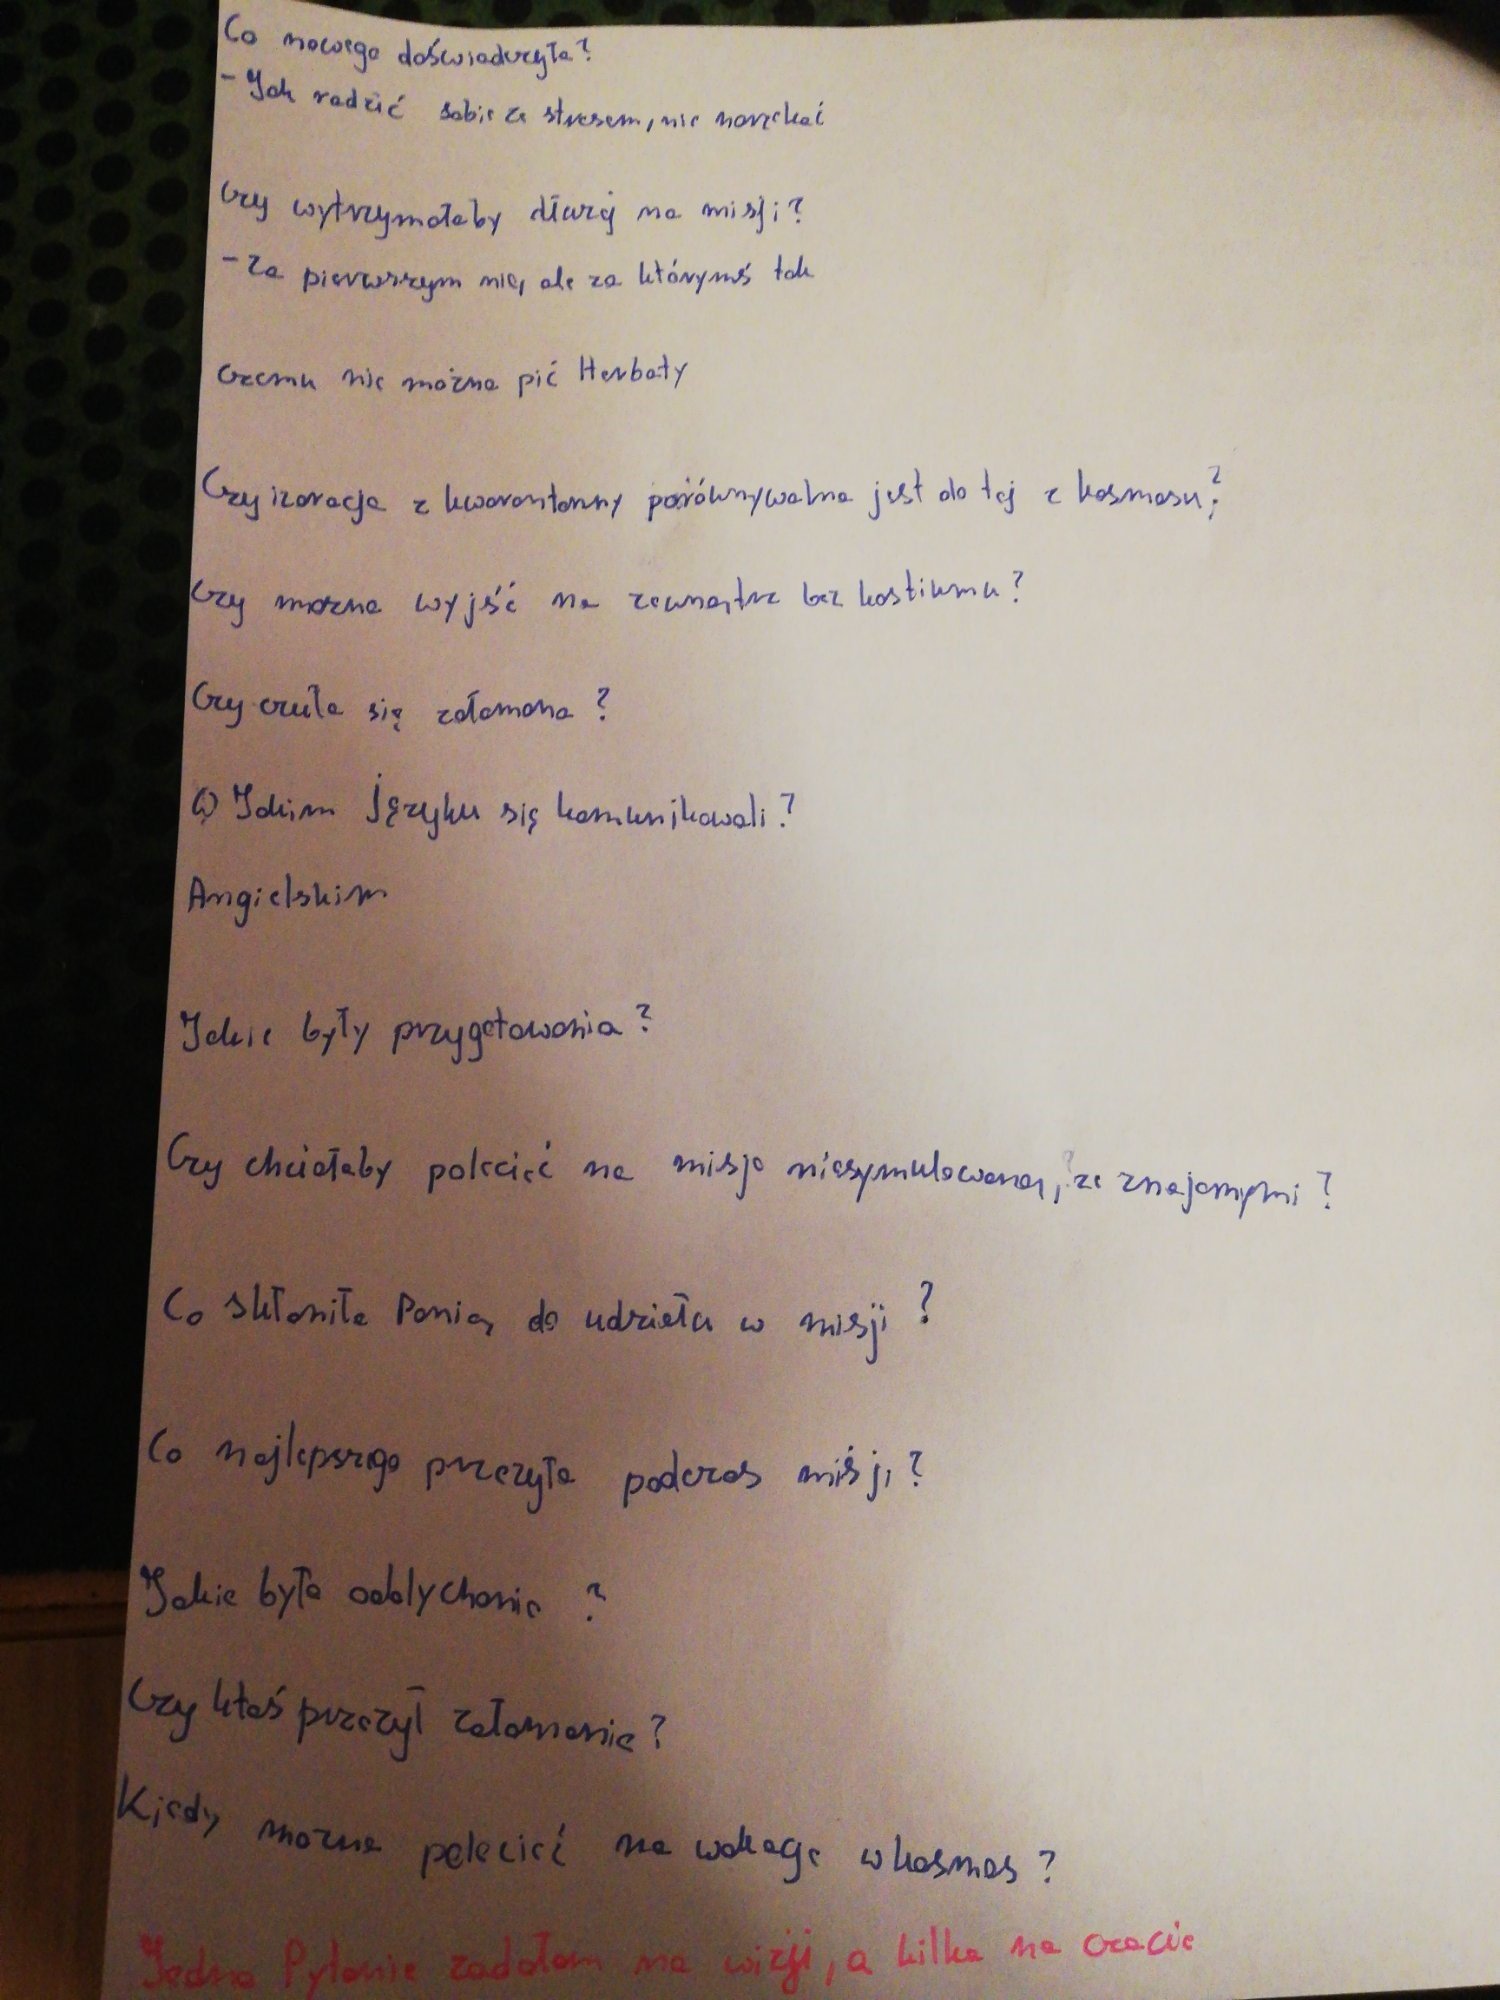 Co nowego doświadczyła?
- Jak radzić sobie ze stresem, nie narzekać
Czy wytrzymałaby dłużej na misji?
- Za pierwszym nie, ale za którymś tak
Czemu nie można pić Herbaty
Czy izoracja z kwarantanny porównywalna jest do tej z kosmosu?
Czy można wyjść na zewnątrz bez kostiumu?
Czy czuła się załamana?
W Jakim języku się komunikowali?
Angielskim
Jakie były przygotowania?
Czy chciałaby polecieć na misje niesymulowaną, ze znajomymi?
Co skłoniła Panią do udziału w misji?
Co najlepszego przeżyła podczas misji?
Jakie było oddychanie?
Czy ktoś przeżył załamanie?
Kiedy można polecieć na wakacje w kosmos?
Jedno Pytanie zadałam na wizji, a kilka na czacie